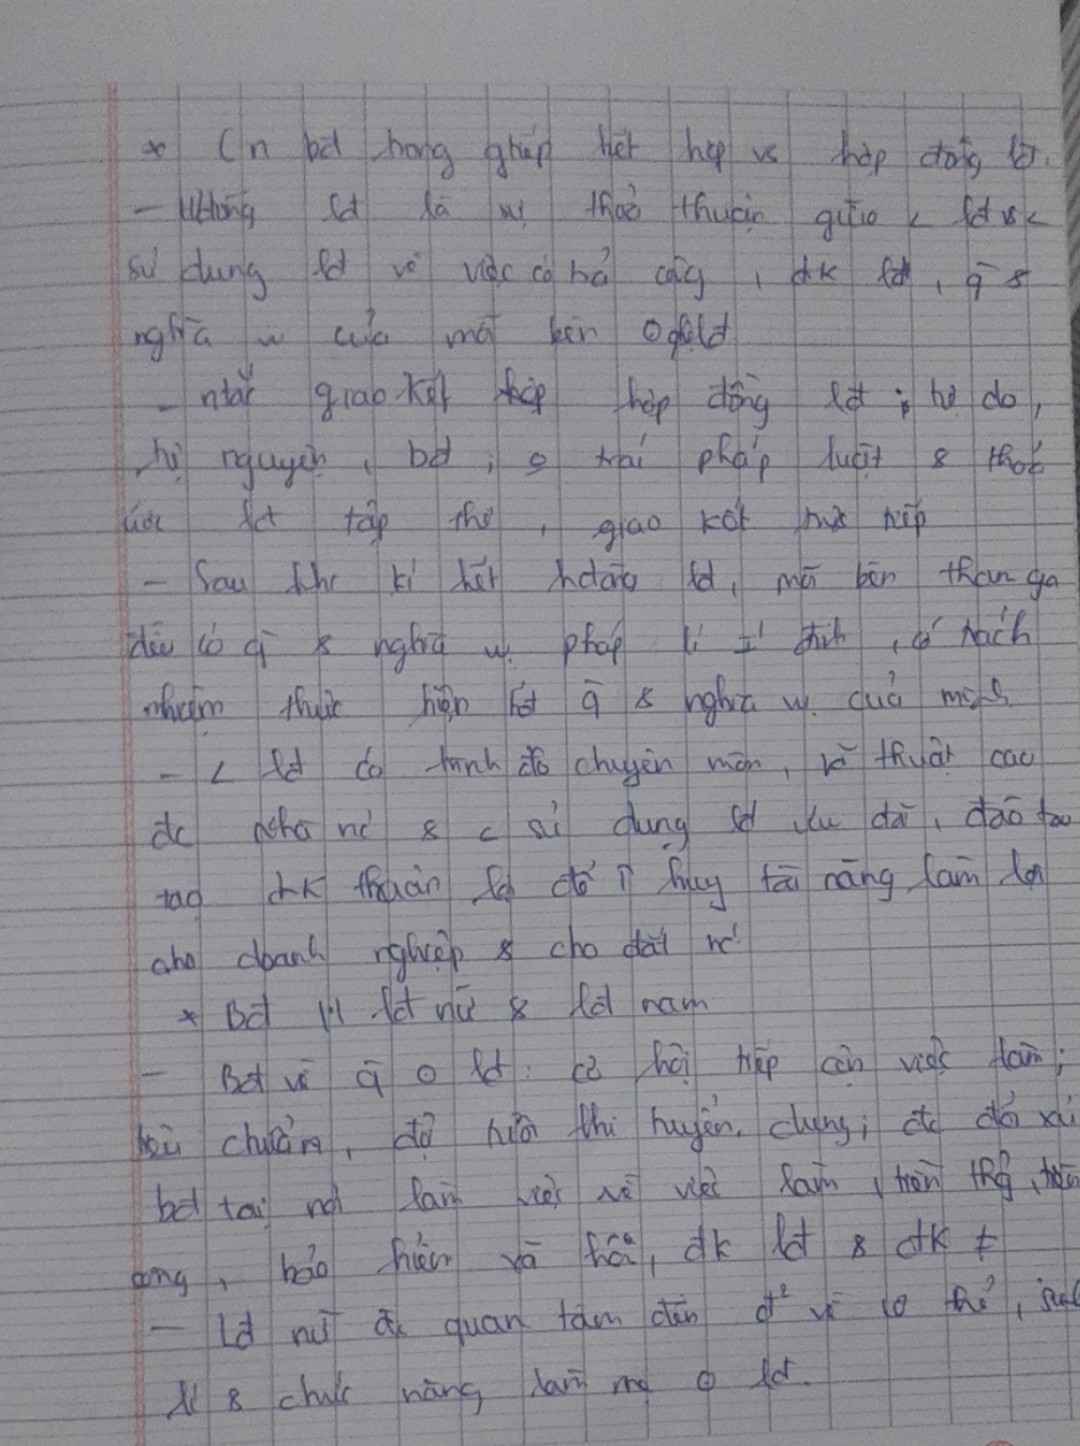 * Cn bđ trong giao kết hợp vs hợp đồng lđ.
- Hđồng lđ là sự thoả thuận giữa < lđ vs <
sử dụng lđ về việc có trả công, đk lđ, q̄ &
nghĩa vụ của mỗi bên o lđ
- ntắc giao kết hợp đồng lđ: tự do,
tự nguyện, bđ; o trái pháp luật & thoả
ước lđ tập thể, giao kết trực tiếp
- Sau khi kí kết hđồng lđ, mỗi bên tham gia
đều có q̄ & nghĩa vụ pháp lí I' định, có trách
nhiệm thực hiện tốt q̄ & nghĩa vụ của mình
- < lđ có trình độ chuyên môn, kĩ thuật cao
đc nhà nc' & < sử dụng lđ ưu đãi, đào tạo
tạo đk thuận lợi để huy tài năng làm lợi
cho doanh nghiệp & cho đất nc'
* Bđ lđ nữ & lđ nam
- Bđ về q̄ o lđ: cơ hội tiếp cận việc làm;
tiêu chuẩn, độ tuổi khi tuyển dụng; đc đối xử
bđ tại nơi làm việc về việc làm, tiền
công, bảo hiểm xã hội, đk lđ & đk ≠
- Lđ nữ đc quan tâm đến đ² về cơ thể,
lí & chức năng làm mẹ o lđ.